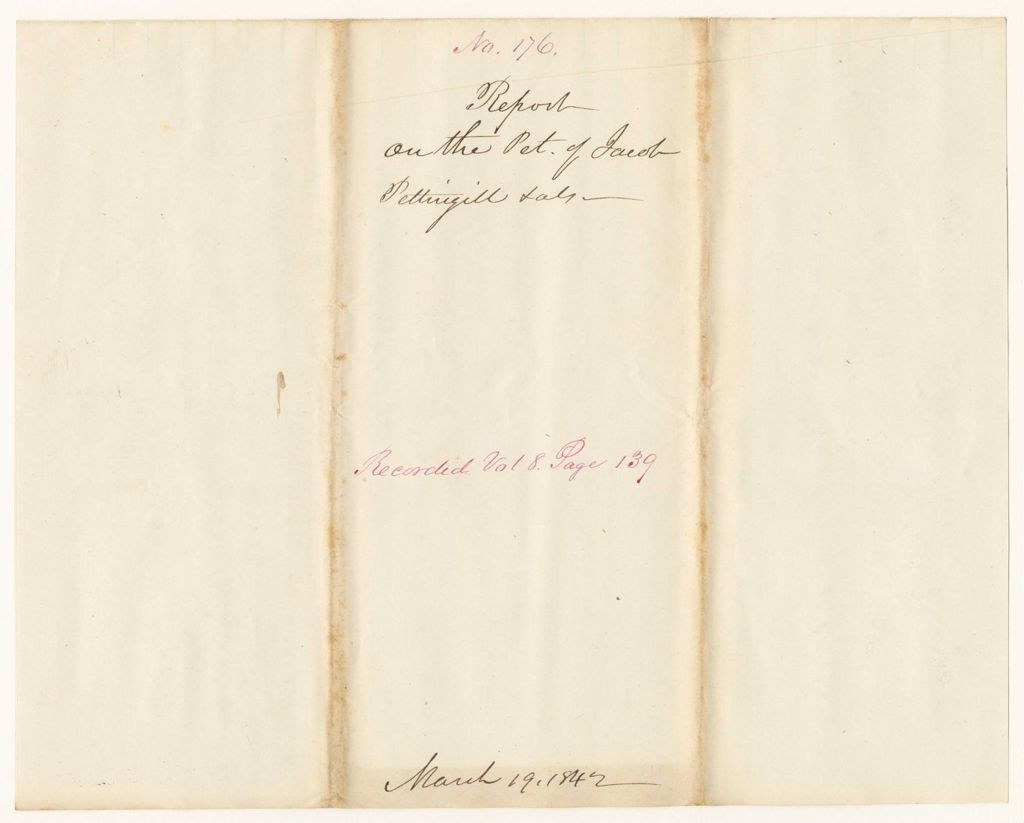 No. 176.
Report
on the Pet. of Jacob
Pettingill & als
Recorded Vol 8. Page 139
March 19, 1842